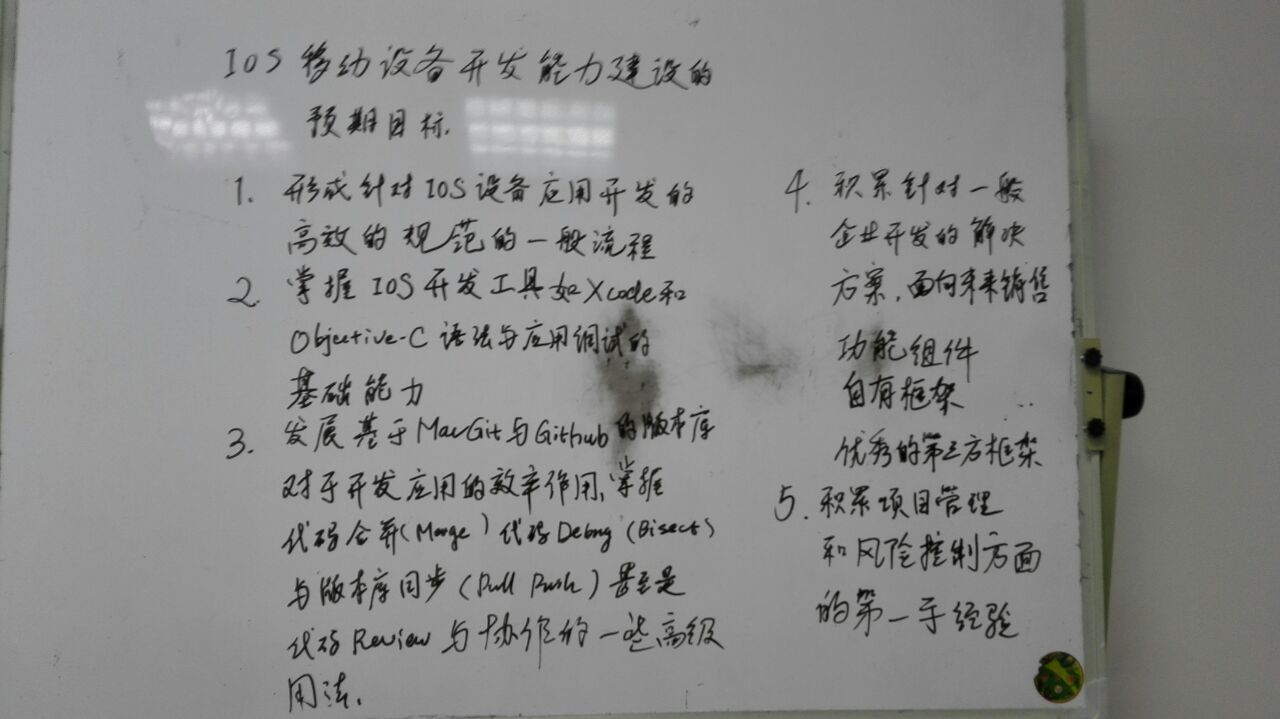 IOS 移动设备开发能力建设的
预期目标.
1. 形成针对IOS设备应用开发的
高效的规范的一般流程
2. 掌握IOS开发工具如Xcode和
Objective-C 语法与应用调试的
基础能力
3. 发展基于MacGit与Github的版本库
对于开发应用的效率作用,掌握
代码合并(Merge)代码Debug(Bisect)
与版本库同步(Pull Push)甚至是
代码Review与协作的一些高级
用法.
4. 积累针对一般
企业开发的解决
方案,面向未来销售
功能组件
自有框架
优秀的第三方框架
5. 积累项目管理
和风险控制方面
的第一手经验